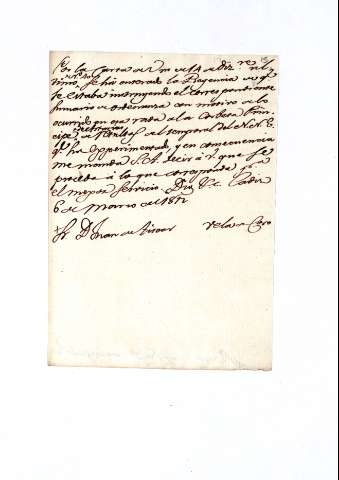 Por la Carta de V. m de 14 de Diz.re ul
timo se ha enterado la Regencia de q.e
se estaba instruyendo el correspondiente
sumario de ordenanza con motivo de lo
ocurrido en esa rada a la Corbeta Prin
cipe de Asturias al temporal del N.N.E.
q.e ha experimentado, y en consecuencia
me manda S.A. decir à V. que se
proceda à lo que corresponda p.a
el mejor servicio. Dios &.a Cadiz
6 de Marzo de 1812
Sr. D. Juan de